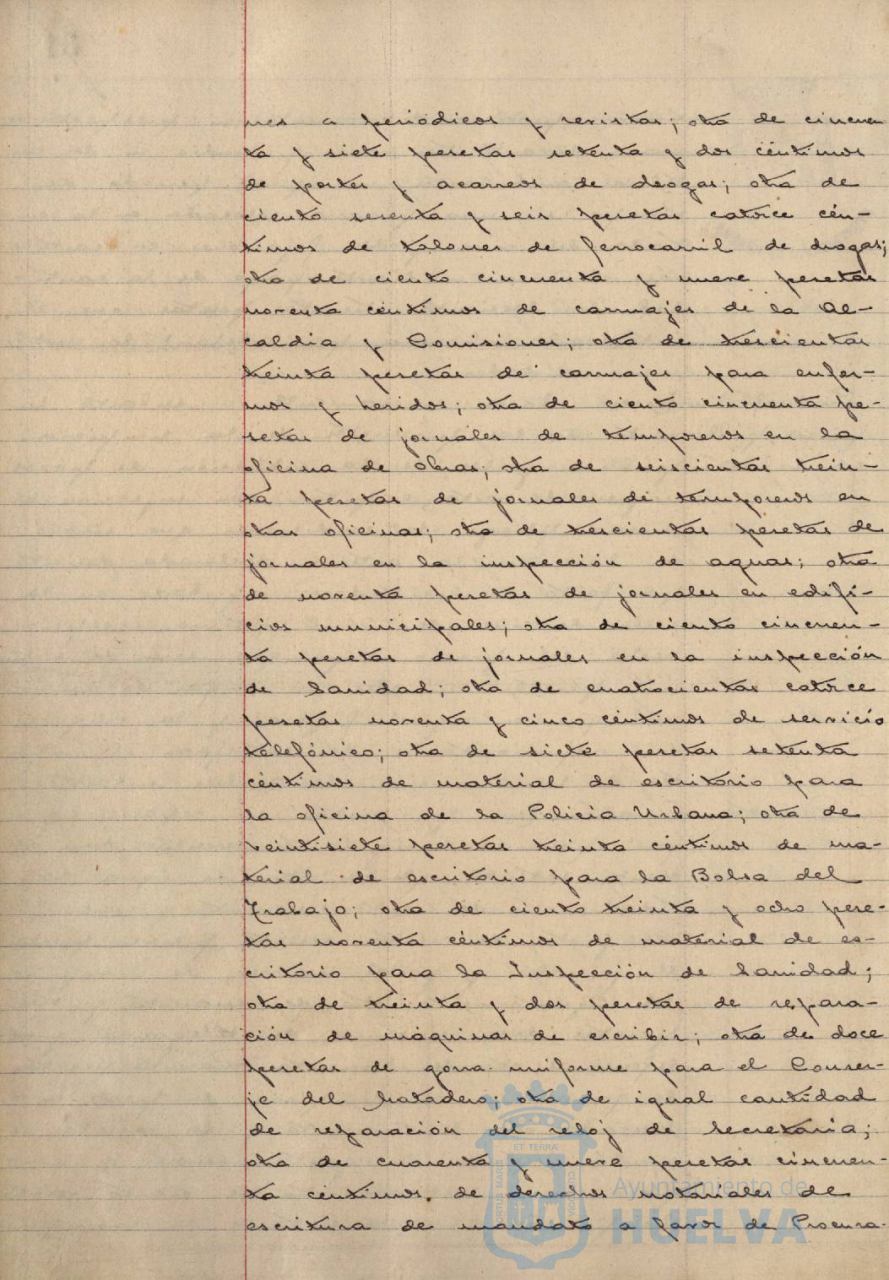 nes a periódicos y revistas; otra de cincuen
ta y siete pesetas setenta y dos céntimos
de portes y acarreos de drogas; otra de
ciento sesenta y seis pesetas catorce cén-
timos de talones de ferrocarril de drogas;
otra de ciento cincuenta y nueve pesetas
noventa céntimos de carruajes de la Al-
caldia y Comisiones; otra de trescientas
treinta pesetas de carruajes para enfer-
mos y heridos; otra de ciento cincuenta pe-
setas de jornales de temporeros en la
oficina de Obras; otra de seiscientas trein-
ta pesetas de jornales de temporeros en
otras oficinas; otra de trescientas pesetas de
jornales en la inspección de aguas; otra
de noventa pesetas de jornales en edifi-
cios municipales; otra de ciento cincuen-
ta pesetas de jornales en la inspección
de Sanidad; otra de cuatrocientas catorce
pesetas noventa y cinco céntimos de servicio
telefónico; otra de siete pesetas setenta
céntimos de material de escritorio para
la oficina de la Policia Urbana; otra de
veintisiete pesetas treinta céntimos de ma-
terial de escritorio para la Bolsa del
Trabajo; otra de ciento treinta y ocho pese-
tas noventa céntimos de material de es-
critorio para la Inspección de Sanidad;
otra de treinta y dos pesetas de repara-
ción de máquinas de escribir; otra de doce
pesetas de gorra uniforme para el Conser-
je del Matadero; otra de igual cantidad
de reparación del reloj de Secretaria;
otra de cuarenta y nueve pesetas cincuen-
ta céntimos de derechos notariales de
escritura de mandato a favor de Procura-
ET TERRÆ
Ayuntamiento de
HUELVA